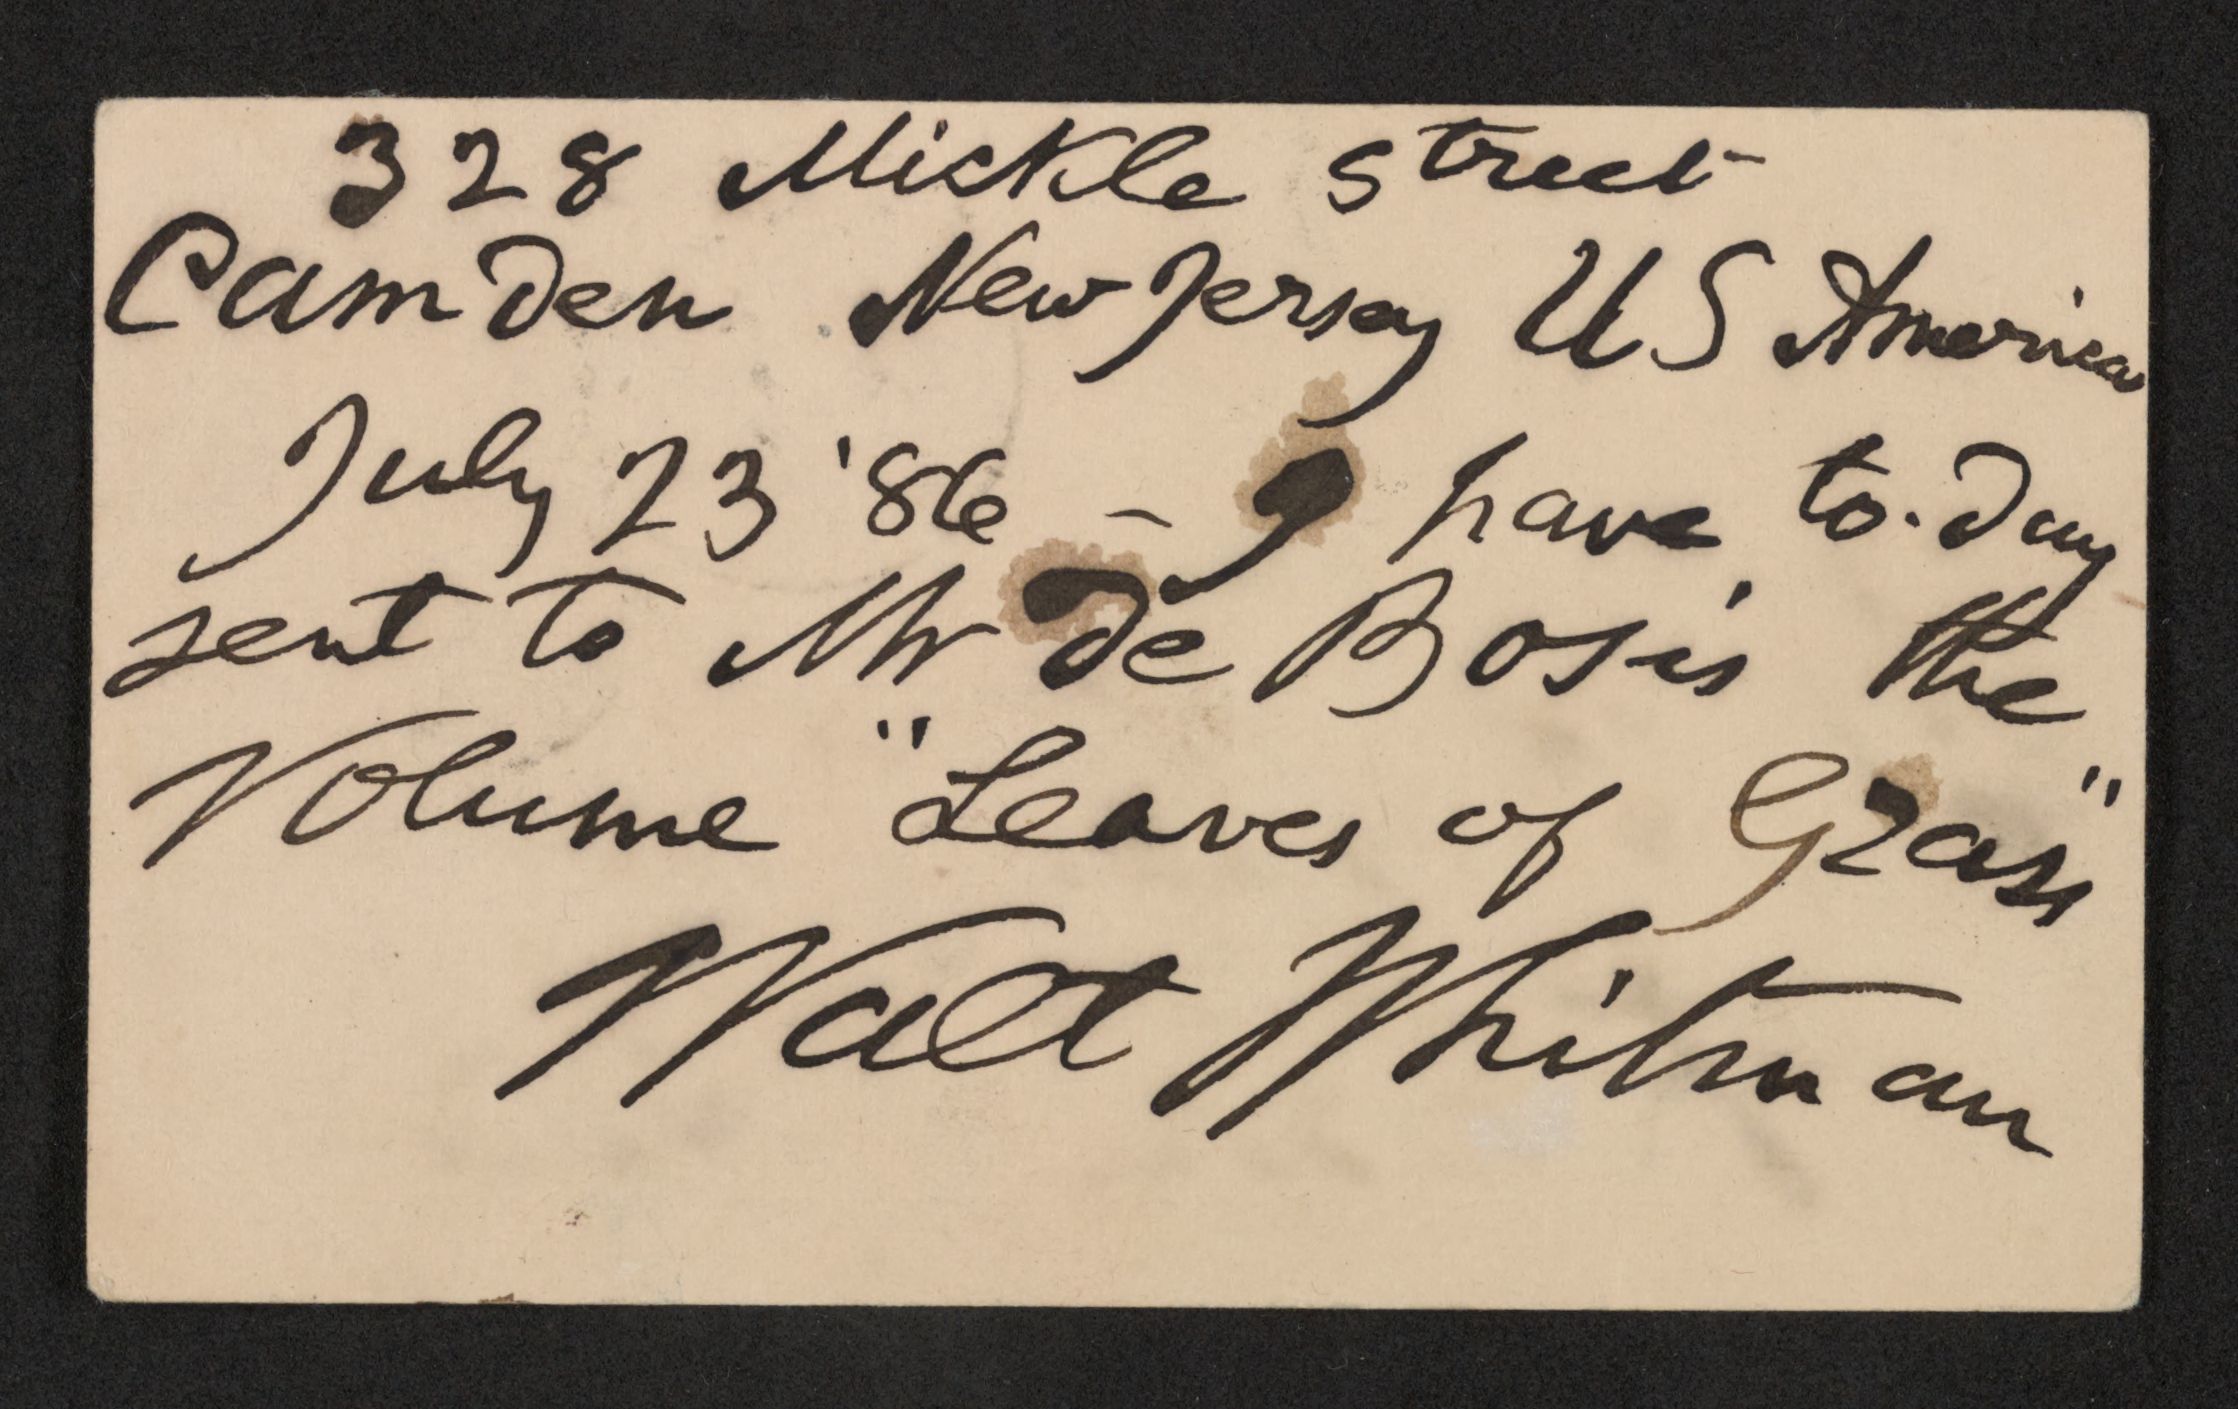 328 Mickle street
Camden New Jersey US America
July 23 '86 – I have to-day
sent to Mr de Bosis the
Volume "Leaves of Grass"
Walt Whitman